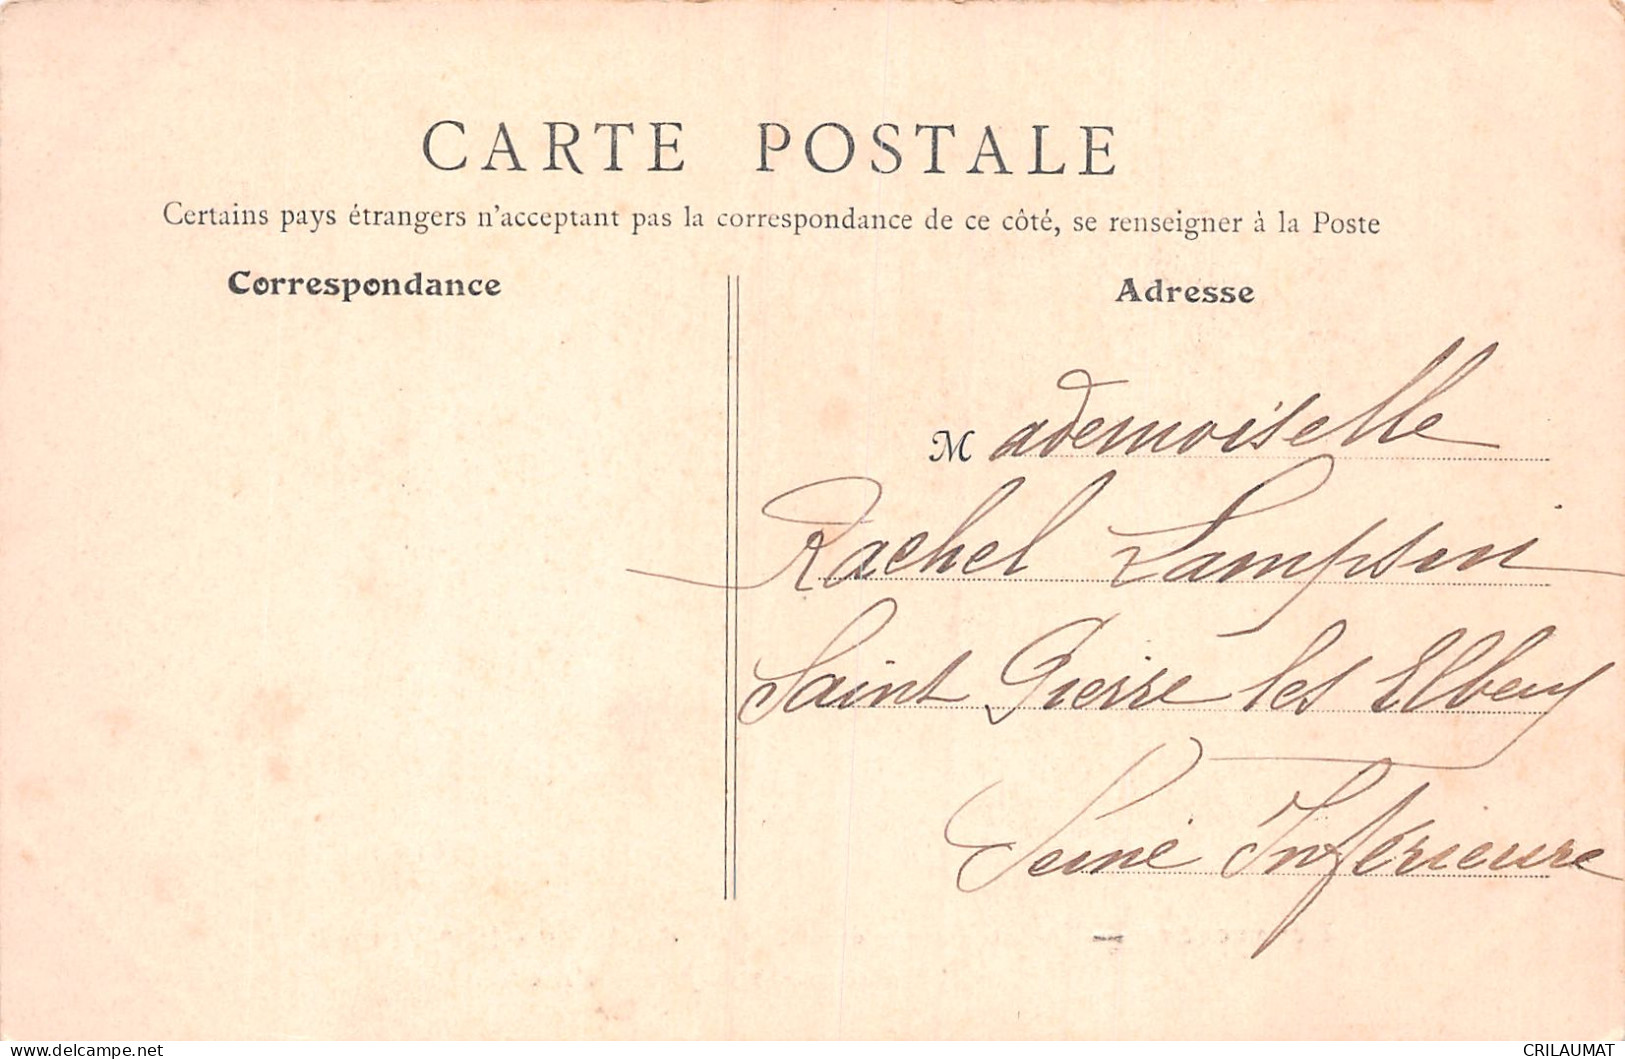 CARTE POSTALE
Certains pays étrangers n'acceptant pas la correspondance de ce côté, se renseigner à la Poste
Correspondance
Adresse
Mademoiselle
Rachel Lampson
Saint Pierre les Elbeuf
Seine Inférieure
www.delcampe.net
CRILAUMAT